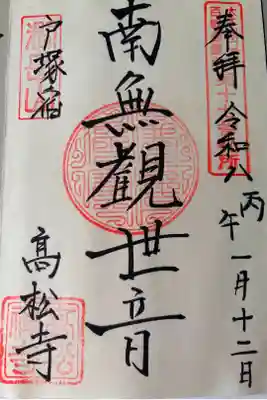 奉拝 令和八丙午一月十二日
南無觀世音
戸塚宿
高松寺